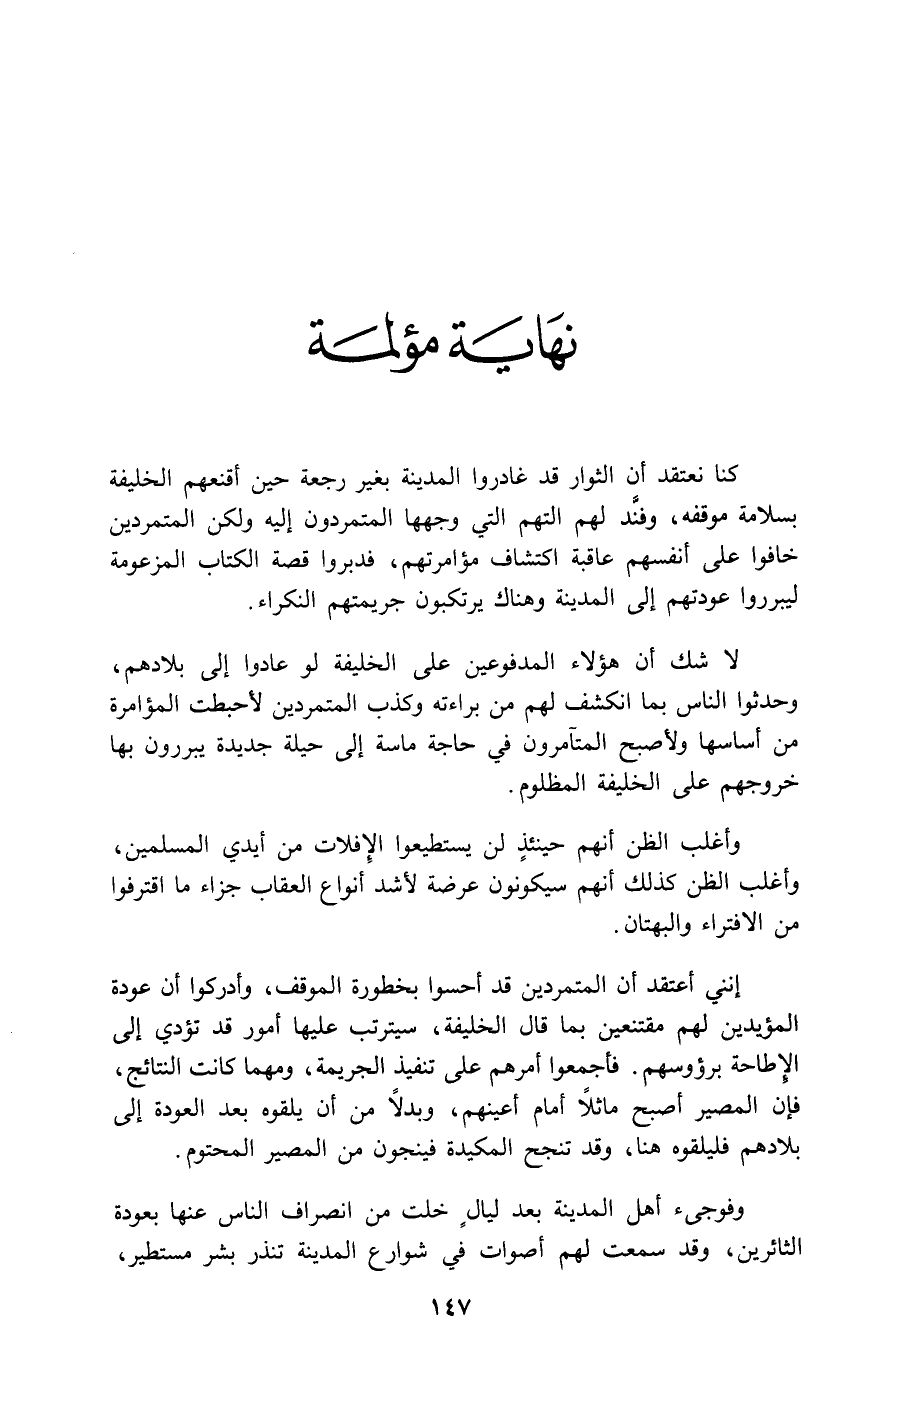 نهاية مؤلمة
كنا نعتقد أن الثوار قد غادروا المدينة بغير رجعة حين أقنعهم الخليفة
بسلامة موقفه، وفنَّد لهم التهم التي وجهها المتمردون إليه ولكن المتمردين
خافوا على أنفسهم عاقبة اكتشاف مؤامرتهم، فدبروا قصة الكتاب المزعومة
ليبرروا عودتهم إلى المدينة وهناك يرتكبون جريمتهم النكراء.
لا شك أن هؤلاء المدفوعين على الخليفة لو عادوا إلى بلادهم،
وحدثوا الناس بما انكشف لهم من براءته وكذب المتمردين لأحبطت المؤامرة
من أساسها ولأصبح المتآمرون في حاجة ماسة إلى حيلة جديدة يبررون بها
خروجهم على الخليفة المظلوم.
وأغلب الظن أنهم حينئذٍ لن يستطيعوا الإفلات من أيدي المسلمين،
وأغلب الظن كذلك أنهم سيكونون عرضة لأشد أنواع العقاب جزاء ما اقترفوا
من الافتراء والبهتان.
إنني أعتقد أن المتمردين قد أحسوا بخطورة الموقف، وأدركوا أن عودة
المؤيدين لهم مقتنعين بما قال الخليفة، سيترتب عليها أمور قد تؤدي إلى
الإطاحة برؤوسهم. فأجمعوا أمرهم على تنفيذ الجريمة، ومهما كانت النتائج،
فإن المصير أصبح ماثلاً أمام أعينهم، وبدلاً من أن يلقوه بعد العودة إلى
بلادهم فليلقوه هنا، وقد تنجح المكيدة فينجون من المصير المحتوم.
وفوجىء أهل المدينة بعد ليالٍ خلت من انصراف الناس عنها بعودة
الثائرين، وقد سمعت لهم أصوات في شوارع المدينة تنذر بشر مستطير،
١٤٧